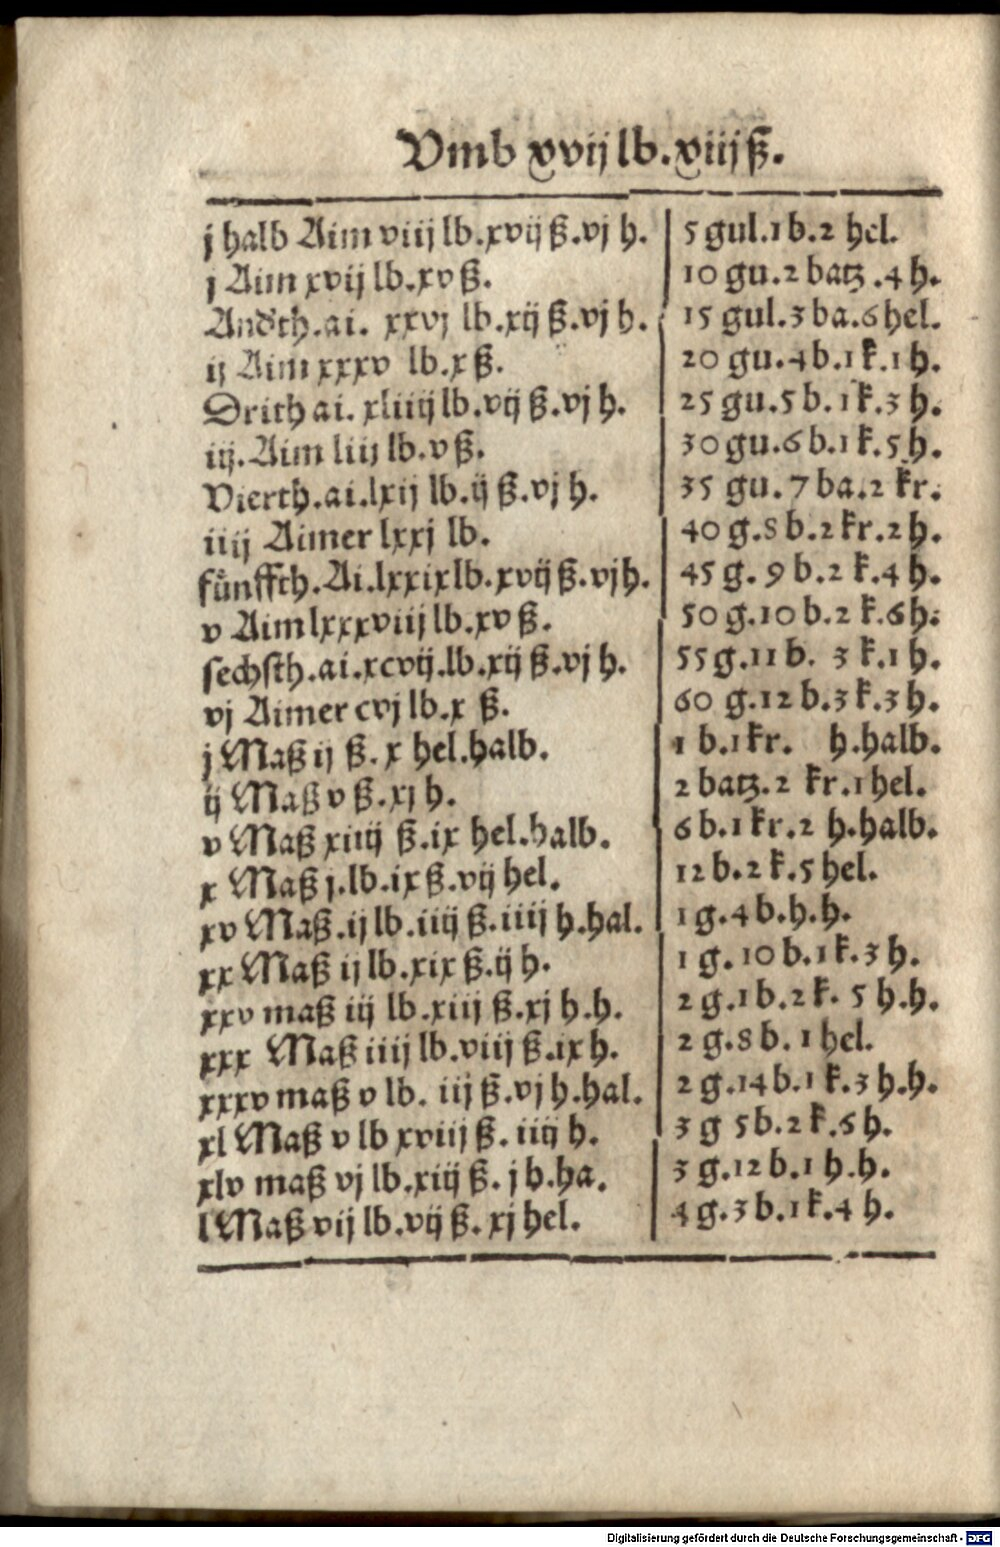 Vmb xvij lb. xiiij ß.
j halb Aim viij lb. xvij ß. vj h. 5 gul. 1 b. 2 hel.
j Aim xvij lb. xv ß. 10 gu. 2 batz. 4 h.
Andth. ai. xxvj lb. xij ß. vj h. 15 gul. 3 ba. 6 hel.
ij Aim xxxv lb. x ß. 20 gu. 4 b. 1 k. 1 h.
Drith ai. xliiij lb. vij ß. vj h. 25 gu. 5 b. 1 k. 3 h.
iij. Aim liij lb. v ß. 30 gu. 6 b. 1 k. 5 h.
Vierth. ai. lxij lb. ij ß. vj h. 35 gu. 7 ba. 2 kr.
iiij Aimer lxxj lb. 40 g. 8 b. 2 kr. 2 h.
fůnffth. Ai. lxxix lb. xvij ß. vj h. 45 g. 9 b. 2 k. 4 h.
v Aim lxxxviij lb. xv ß. 50 g. 10 b. 2 k. 6 h.
sechsth. ai. xcvij. lb. xij ß. vj h. 55 g. 11 b. 3 k. 1 h.
vj Aimer cvj lb. x ß. 60 g. 12 b. 3 k. 3 h.
j Maß ij ß. x hel. halb. 1 b. 1 kr. h. halb.
ij Maß v ß. xj h. 2 batz. 2 kr. 1 hel.
v Maß xiiij ß. ix hel. halb. 6 b. 1 kr. 2 h. halb.
x Maß j. lb. ix ß. vij hel. 12 b. 2 k. 5 hel.
xv Maß. ij lb. iiij ß. iiij h. hal. 1 g. 4 b. h. h.
xx Maß ij lb. xix ß. ij h. 1 g. 10 b. 1 k. 3 h.
xxv maß iij lb. xiij ß. xj h. h. 2 g. 1 b. 2 k. 5 h. h.
xxx Maß iiij lb. viij ß. ix h. 2 g. 8 b. 1 hel.
xxxv maß v lb. iij ß. vj h. hal. 2 g. 14 b. 1 k. 3 h. h.
xl Maß v lb xviij ß. iiij h. 3 g 5 b. 2 k. 6 h.
xlv maß vj lb. xiij ß. j h. ha. 3 g. 12 b. 1 h. h.
l Maß vij lb. vij ß. xj hel. 4 g. 3 b. 1 k. 4 h.
Digitalisierung gefördert durch die Deutsche Forschungsgemeinschaft - DFG